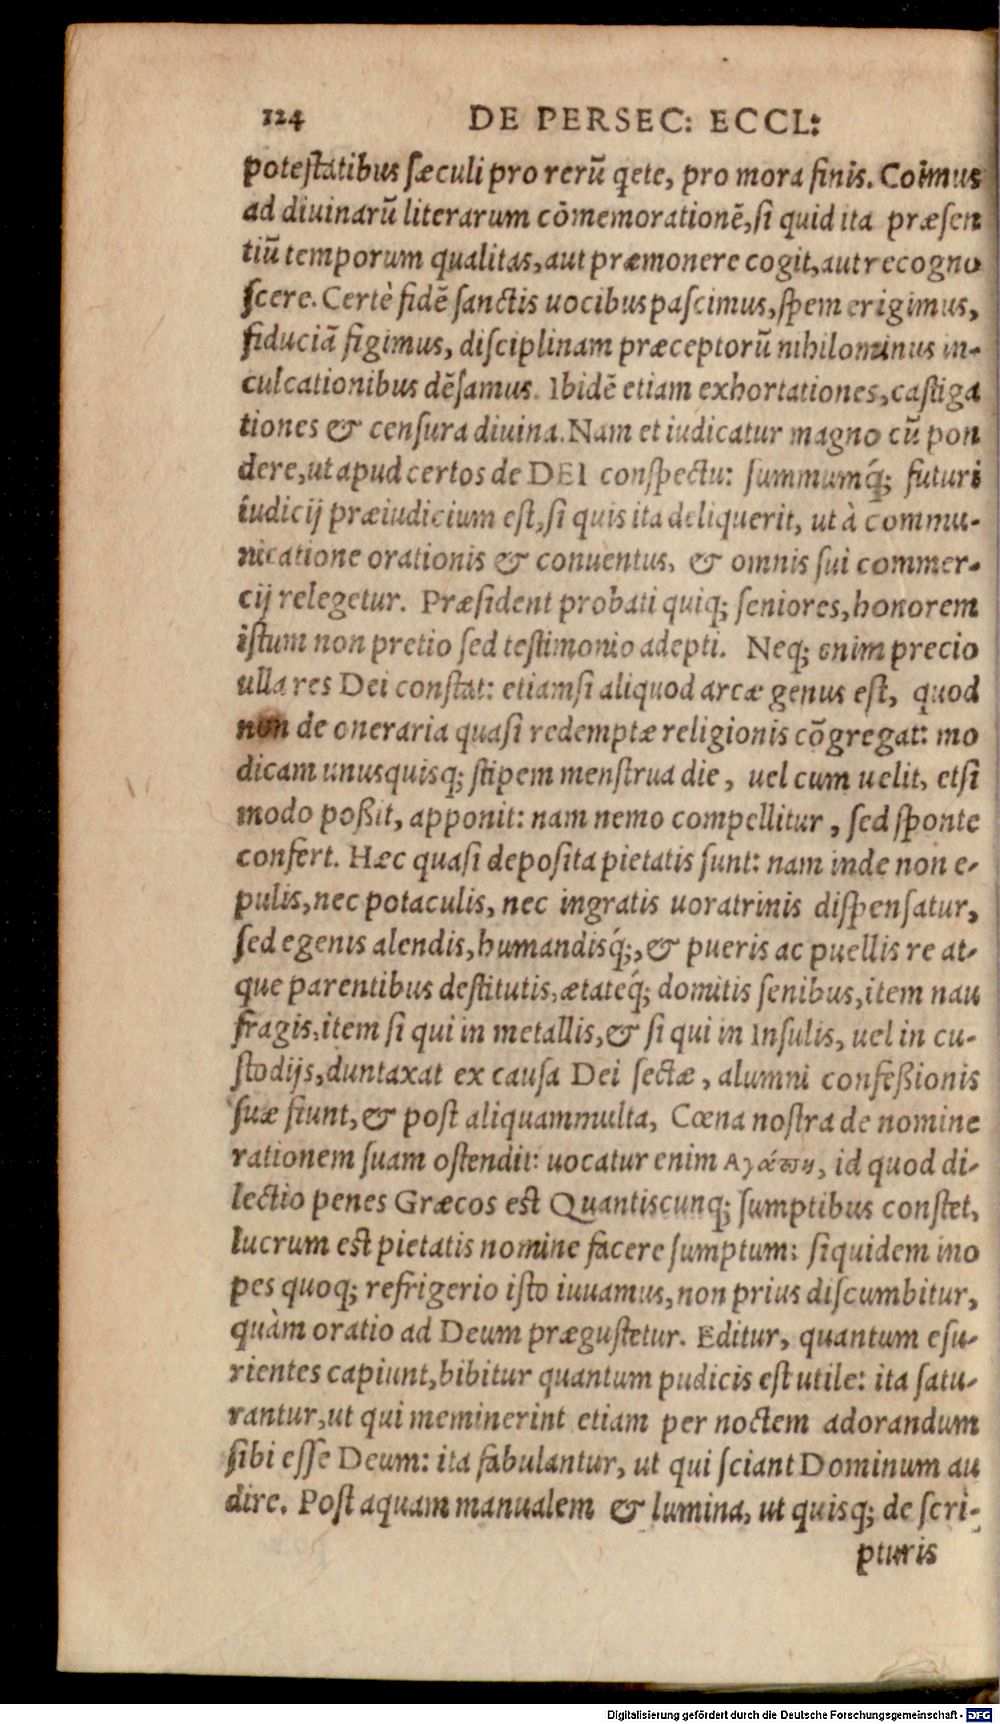 124 DE PERSEC: ECCL:
potestatibus sæculi pro rerũ q̃ete, pro mora finis. Coimus
ad diuinarũ literarum cõmemorationẽ, si quid ita præsen
tiũ temporum qualitas, aut præmonere cogit, aut recogno
scere. Certè fidẽ sanctis uocibus pascimus, spem erigimus,
fiduciã figimus, disciplinam præceptorũ nihilominus in-
culcationibus dẽsamus. Ibidẽ etiam exhortationes, castiga
tiones & censura diuina. Nam et iudicatur magno cũ pon
dere, ut apud certos de DEI conspectu: summumq́; futuri
iudicij præiudicium est, si quis ita deliquerit, ut à commu-
nicatione orationis & conuentus, & omnis sui commer-
cij relegetur. Præsident probati quiq; seniores, honorem
istum non pretio sed testimonio adepti. Neq; enim precio
ulla res Dei constat: etiamsi aliquod arcæ genus est, quod
non de oneraria quasi redemptæ religionis cõgregat: mo
dicam unusquisq; stipem menstrua die, uel cum uelit, etsi
modo poßit, apponit: nam nemo compellitur, sed sponte
confert. Hæc quasi deposita pietatis sunt: nam inde non e-
pulis, nec potaculis, nec ingratis uoratrinis dispensatur,
sed egenis alendis, humandisq́;, & pueris ac puellis re at-
que parentibus destitutis, ætateq́; domitis senibus, item nau
fragis, item si qui in metallis, & si qui in Insulis, uel in cu-
stodijs, duntaxat ex causa Dei sectæ, alumni confeßionis
suæ fiunt, & post aliquammulta, Cœna nostra de nomine
rationem suam ostendit: uocatur enim Ἀγάπη, id quod di-
lectio penes Græcos est Quantiscunq; sumptibus constet,
lucrum est pietatis nomine facere sumptum: siquidem ino
pes quoq; refrigerio isto iuuamus, non prius discumbitur,
quàm oratio ad Deum prægustetur. Editur, quantum esu-
rientes capiunt, bibitur quantum pudicis est utile: ita satu-
rantur, ut qui meminerint etiam per noctem adorandum
sibi esse Deum: ita fabulantur, ut qui sciant Dominum au
dire. Post aquam manualem & lumina, ut quisq; de scri-
pturis
Digitalisierung gefördert durch die Deutsche Forschungsgemeinschaft - DFG